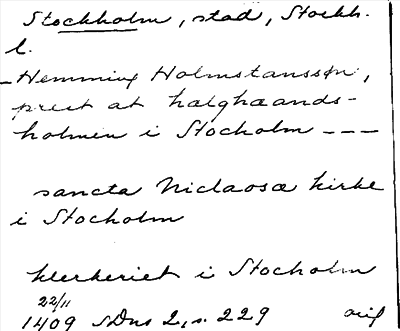 Stockholm, stad, Stockh.
l.
Hemming Holmstansson,
prest at hælghaands-
holmen i Stocholm ---
sancta Niclaosa kirke
i Stocholm
klerkeriet i Stocholm
22/11
1409 SDns 2, s. 229 orig